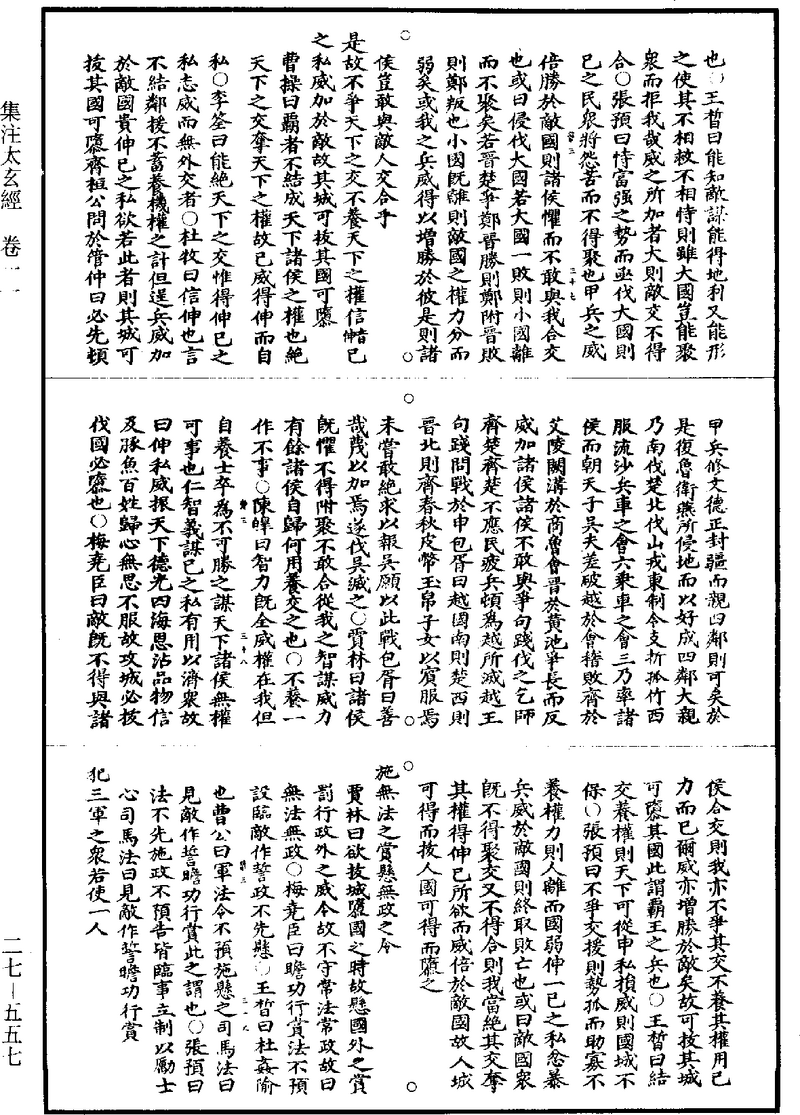 集注太玄經　卷一一
二七－五五七
也○王晳曰能知敵謀能得地利又能形
之使其不相救不相恃則雖大國豈能聚
衆而拒我哉威之所加者大則敵交不得
合○張預曰恃富强之勢而亟伐大國則
已之民衆將怨苦而不得聚也甲兵之威
倍勝於敵國則諸侯懼而不敢與我合交
也或曰侵伐大國若大國一敗則小國離
而不聚矣若晉楚爭鄭晉勝則鄭附晉敗
則鄭叛也小國旣離則敵國之權力分而
弱矣或我之兵威得以增勝於彼是則諸
侯豈敢與敵人交合乎
是故不爭天下之交不養天下之權信己
之私威加於敵故其城可拔其國可隳
曹操曰霸者不結成天下諸侯之權也絶
天下之交奪天下之權故已威得伸而自
私○李筌曰能絶天下之交惟得伸已之
私志威而無外交者○杜牧曰信伸也言
不結鄰援不蓄養機權之計但逞兵威加
於敵國貴伸已之私欲若此者則其城可
拔其國可隳齊桓公問於管仲曰必先頓
甲兵修文德正封疆而親四鄰則可矣於
是復魯衛燕所侵地而以好成四鄰大親
乃南伐楚北伐山戎東制令支折孤竹西
服流沙兵車之會六乘車之會三乃率諸
侯而朝天子吳夫差破越於會稽敗齊於
艾陵闕溝於商魯會晉於黃池爭長而反
威加諸侯諸侯不敢與爭句踐伐之乞師
齊楚齊楚不應民疲兵頓爲越所滅越王
句踐問戰於申包胥曰越國南則楚西則
晉北則齊春秋皮幣玉帛子女以賓服焉
未嘗敢絶求以報吳願以此戰包胥曰善
哉蔑以加焉遂伐吳滅之○賈林曰諸侯
旣懼不得附聚不敢合從我之智謀威力
有餘諸侯自歸何用養交之也○不養一
作不事○陳皥曰智力旣全威權在我但
自養士卒爲不可勝之謀天下諸侯無權
可事也仁智義謀已之私有用以濟衆故
曰伸私威振天下德光四海恩沾品物信
及豚魚百姓歸心無思不服故攻城必拔
伐國必隳也○梅堯臣曰敵旣不得與諸
侯合交則我亦不爭其交不養其權用已
力而已爾威亦增勝於敵矣故可拔其城
可隳其國此謂霸王之兵也○王晳曰結
交養權則天下可從申私損威則國城不
保○張預曰不爭交援則勢孤而助寡不
養權力則人離而國弱伸一已之私忿暴
兵威於敵國則終取敗亡也或曰敵國衆
旣不得聚交又不得合則我當絶其交奪
其權得伸已所欲而威倍於敵國故人城
可得而拔人國可得而隳之
施無法之賞懸無政之令
賈林曰欲拔城隳國之時故懸國外之賞
罰行政外之威令故不守常法常政故曰
無法無政○梅堯臣曰瞻功行賞法不預
設臨敵作誓政不先懸○王晳曰杜姦隃
也曹公曰軍法令不預施懸之司馬法曰
見敵作誓瞻功行賞此之謂也○張預曰
法不先施政不預告皆臨事立制以勵士
心司馬法曰見敵作誓瞻功行賞
犯三軍之衆若使一人